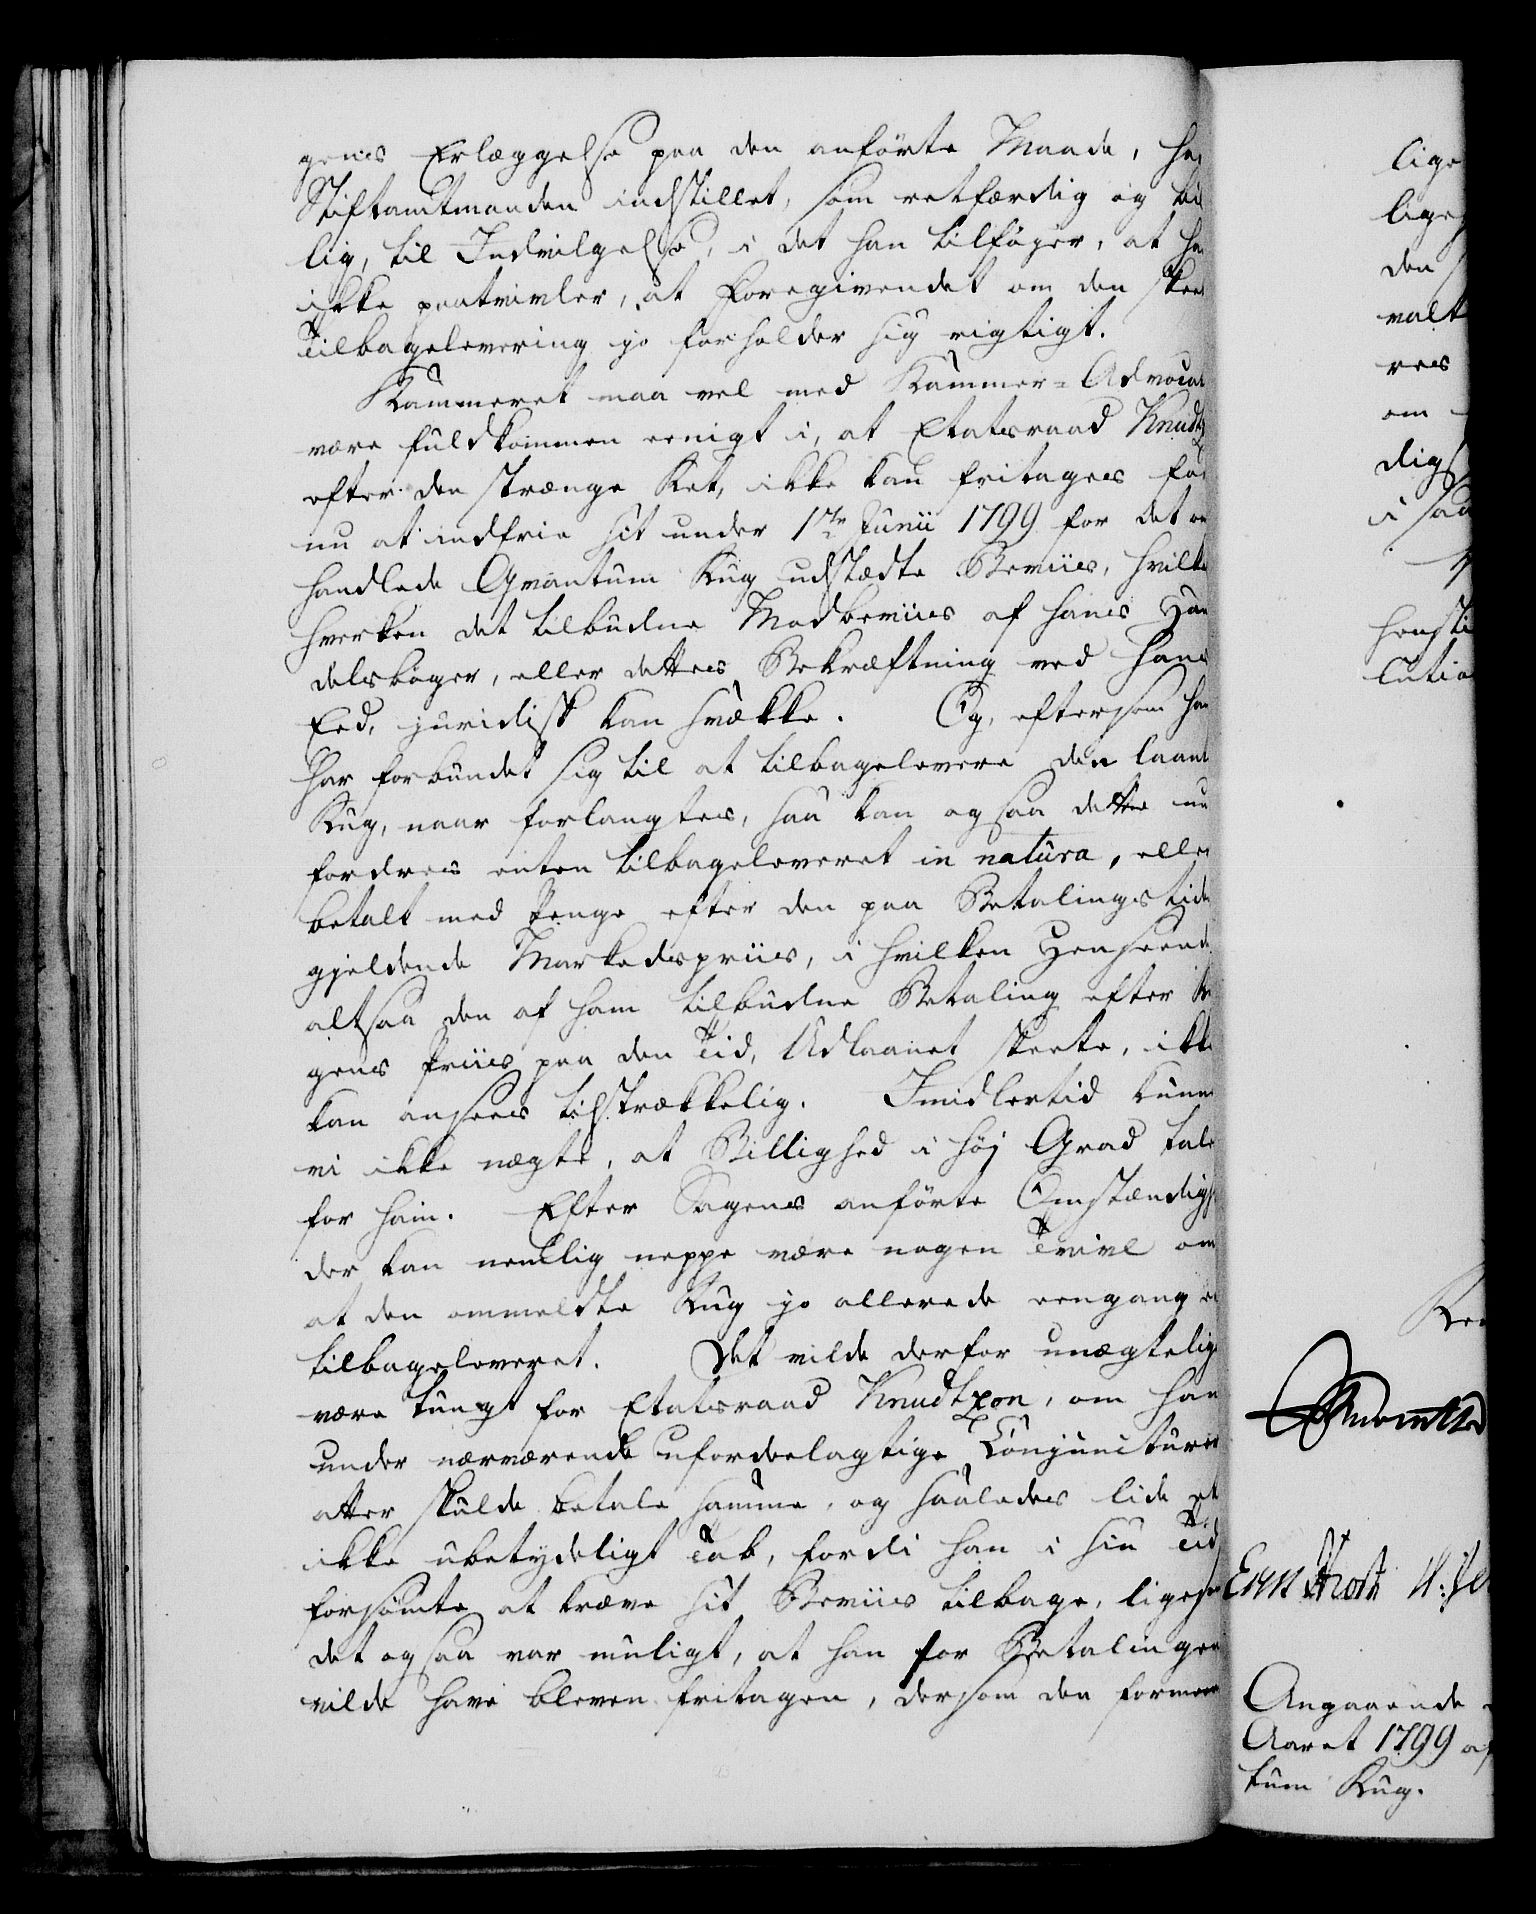 gens Erlæggelse paa den anförte Maade, ha
Stiftamtmanden indstillet, som retfærdig og bil
lig, til Indvilgelse, i det han tilföger, at ha
ikke paatvivler, at Foregivendet om den skee
Tilbagelevering jo forholder sig rigtigt.
Kammeret maa vel med Kammer-Advocat
være fuldkommen eenigt i, at Etatsraad Knudtz
efter den strænge Ret, ikke kan fritages for
nu at indfrie sit under 17de Junii 1799 for det om
handlede Qvantum Rug udstædte Beviis, hvilke
hverken det tilbudne Modbeviis af hans Han
delsböger, eller dettes Bekræftning ved hans
Eed, juridisk kan svække. Og, eftersom han
har forbundet sig til at tilbagelevere den laant
Rug, naar forlangtes, saa kan ogsaa dette nu
fordres enten tilbageleveret in natura, eller
betalt med Penge efter den paa Betalingstide
gjeldende Markedspriis, i hvilken Henseende
altsaa den af ham tilbudne Betaling efter Ru
gens Priis paa den Tid, Udlaanet skeete, ikke
kan ansees tilstrækkelig. Imidlertid kunne
vi ikke nægte, at Billighed i höj Grad tale
for ham. Efter Sagens anförte Omstændigh
der kan nemlig neppe være nogen Tvivl om
at den ommeldte Rug jo allerede eengang er
tilbageleveret. Det vilde derfor unægtelig
være tungt for Etatsraad Knudtzon, om han
under nærværende ufordeelagtige Conjuncturer
atter skulde betale samme, og saaledes lide et
ikke ubetydeligt Tab, fordi han i sin Tid
forsömte at kræve sit Beviis tilbage, ligesom
det ogsaa var muligt, at han for Betalingen
vilde have bleven fritagen, dersom den formeen
lige
lige
den
valt
res
om
digs
i saa
hensti
lution
Angaaende
Aaret 1799 af
tum Rug.